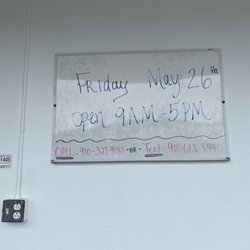 Friday May 26th
open 9AM-5PM
CALL: 910-327-4081 -OR- Text: 910 612 8440
1405